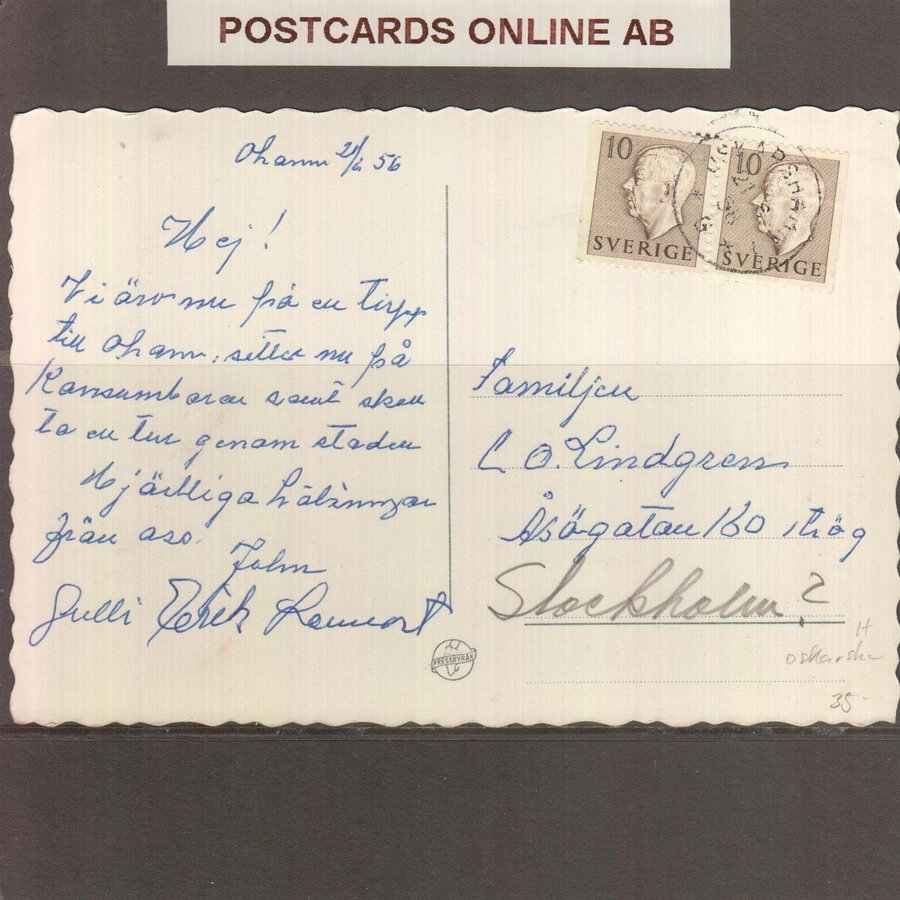 POSTCARDS ONLINE AB
Ohamn 21/6 56
Hej!
Vi äro nu på en tripp
till Ohamn, sitter nu på
Konsumbaren samt skall
ta en tur genom staden
Hjärtliga hälsningar
från oss.
John
Gulli Erik Lennart
10
SVERIGE
10
SVERIGE
Familjen
C O. Lindgren
Åsögatan 160 trög
Stockholm ?
PRESSBYRÅN
35-